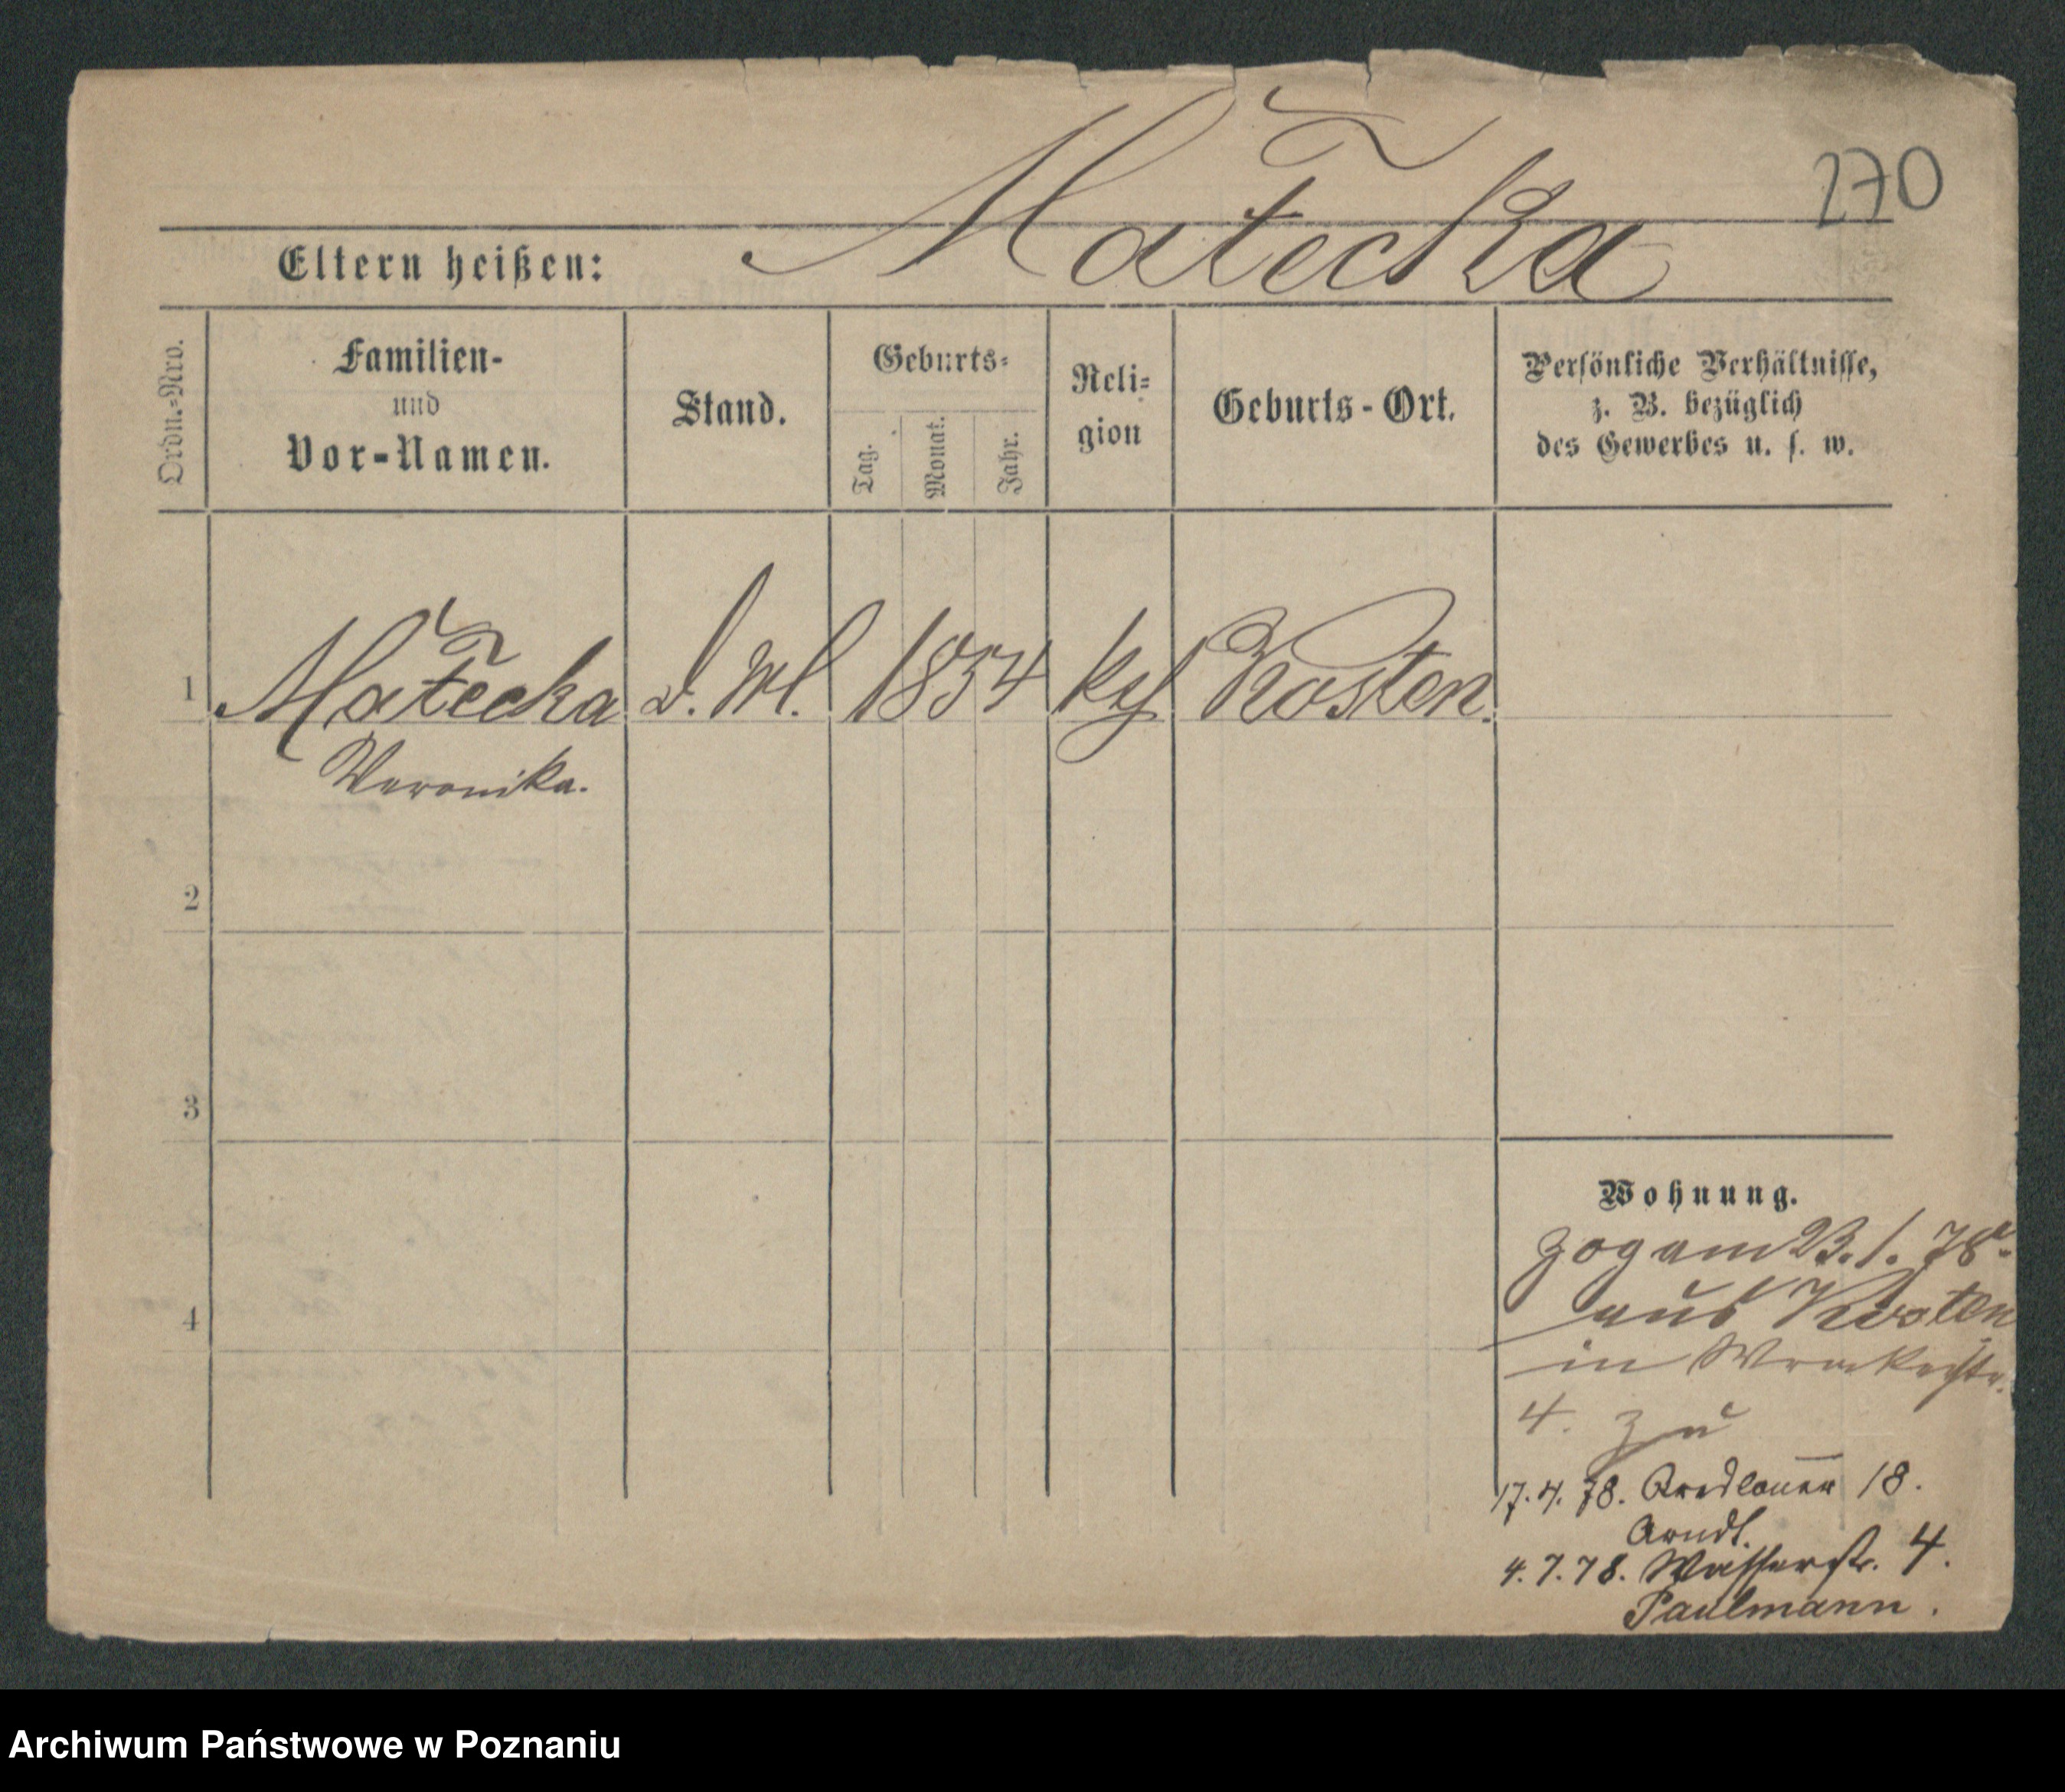 270
Matecka
Eltern heißen:
Ordn.-Nro.
Familien-
und
Vor-Namen.
Stand.
Geburts-
Tag.
Monat.
Jahr.
Reli-
gion
Geburts-Ort.
Persönliche Verhältnisse,
z. B. bezüglich
des Gewerbes u. s. w.
1 Matecka 1854 Kosten.
Veronika.
2
3
4
Wohnung.
zog am 23.1.78
aus Kosten
in Wronkerstr.
4. zu
17.4.78. 18.
Arndt.
4.7.78. Wasserstr. 4.
Paulmann.
Archiwum Państwowe w Poznaniu